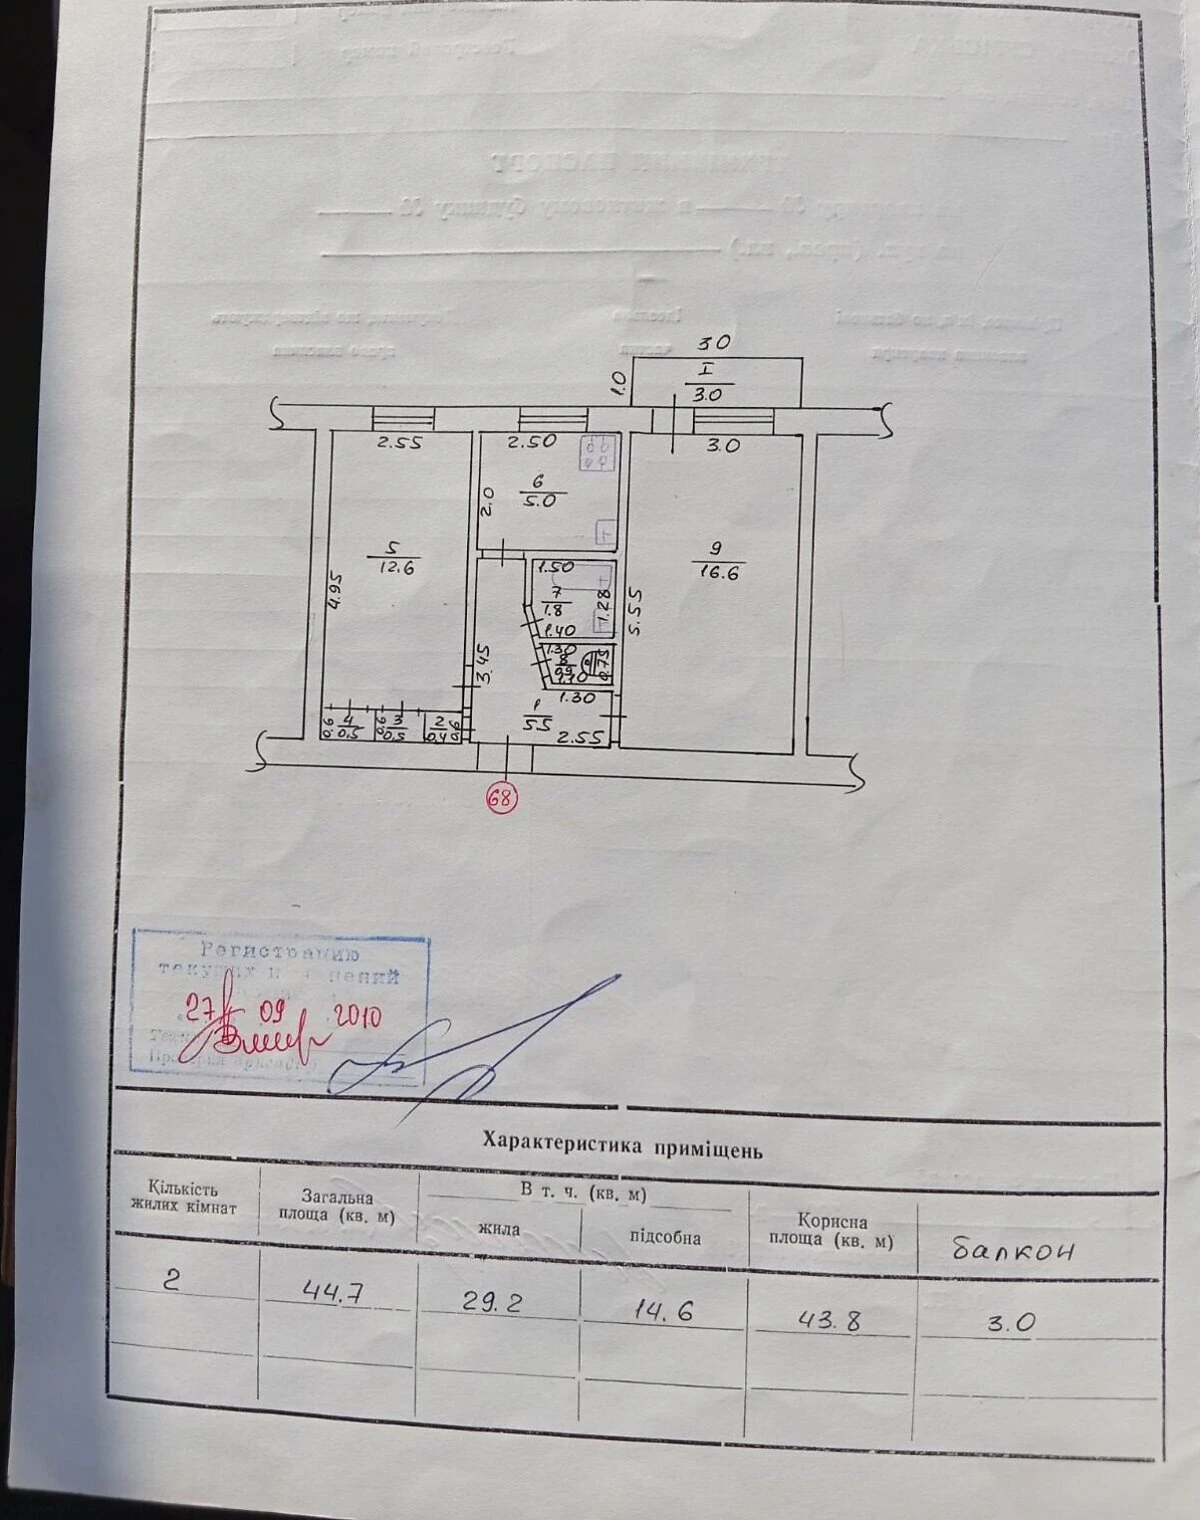 3.0
1.0
I
3.0
2.55
2.50
3.0
6
5.0
2.0
5
12.6
9
16.6
4.95
1.50
7
1.8
1.28
5.55
1.40
3.45
1.30
8
0.9
0.75
1.10
1.30
1
5.5
2.55
4
0.5
3
0.5
2
0.4
68
Регистрацию
27 09 2010
Характеристика приміщень
Кількість
жилих кімнат
Загальна
площа (кв. м)
В т. ч. (кв. м)
жила
підсобна
Корисна
площа (кв. м)
балкон
2
44.7
29.2
14.6
43.8
3.0